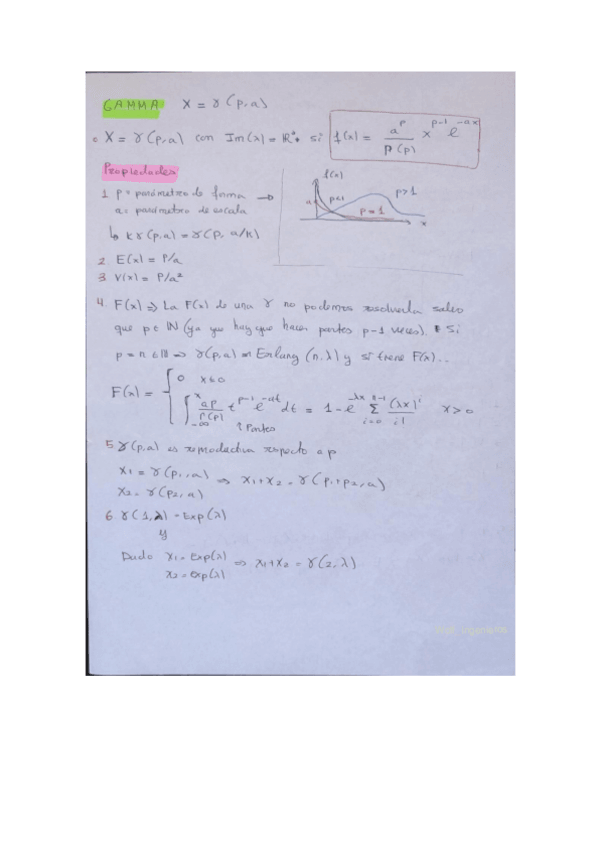 GAMMA X = γ(p,a)
○ X = γ(p,a) con Im(x) = ℝ⁺ si f(x) = a^p / Γ(p) x^(p-1) e^(-ax)
Propiedades
1. p = parámetro de forma →
a = parámetro de escala
↳ kγ(p,a) = γ(p, a/k)
f(x)
a
p<1
p=1
p>1
x
2. E(x) = p/a
3. V(x) = p/a²
4. F(x) ⇒ La F(x) de una γ no podemos resolverla salvo
que p ∈ ℕ (ya que hay que hacer partes p-1 veces). Si
p = n ∈ ℕ ⇒ γ(p,a) = Erlang (n,λ) y sí tiene F(x)...
F(x) = { 0 x≤0
∫_{-∞}^{x} a^p/Γ(p) t^(p-1) e^(-at) dt = 1 - e^(-λx) Σ_{i=0}^{n-1} (λx)^i / i! x>0
↑ Partes
5. γ(p,a) es reproductiva respecto a p
X₁ = γ(p₁,a) ⇒ X₁+X₂ = γ(p₁+p₂,a)
X₂ = γ(p₂,a)
6. γ(1,λ) = Exp(λ)
y
Dado X₁ = Exp(λ) ⇒ X₁+X₂ = γ(2,λ)
X₂ = exp(λ)